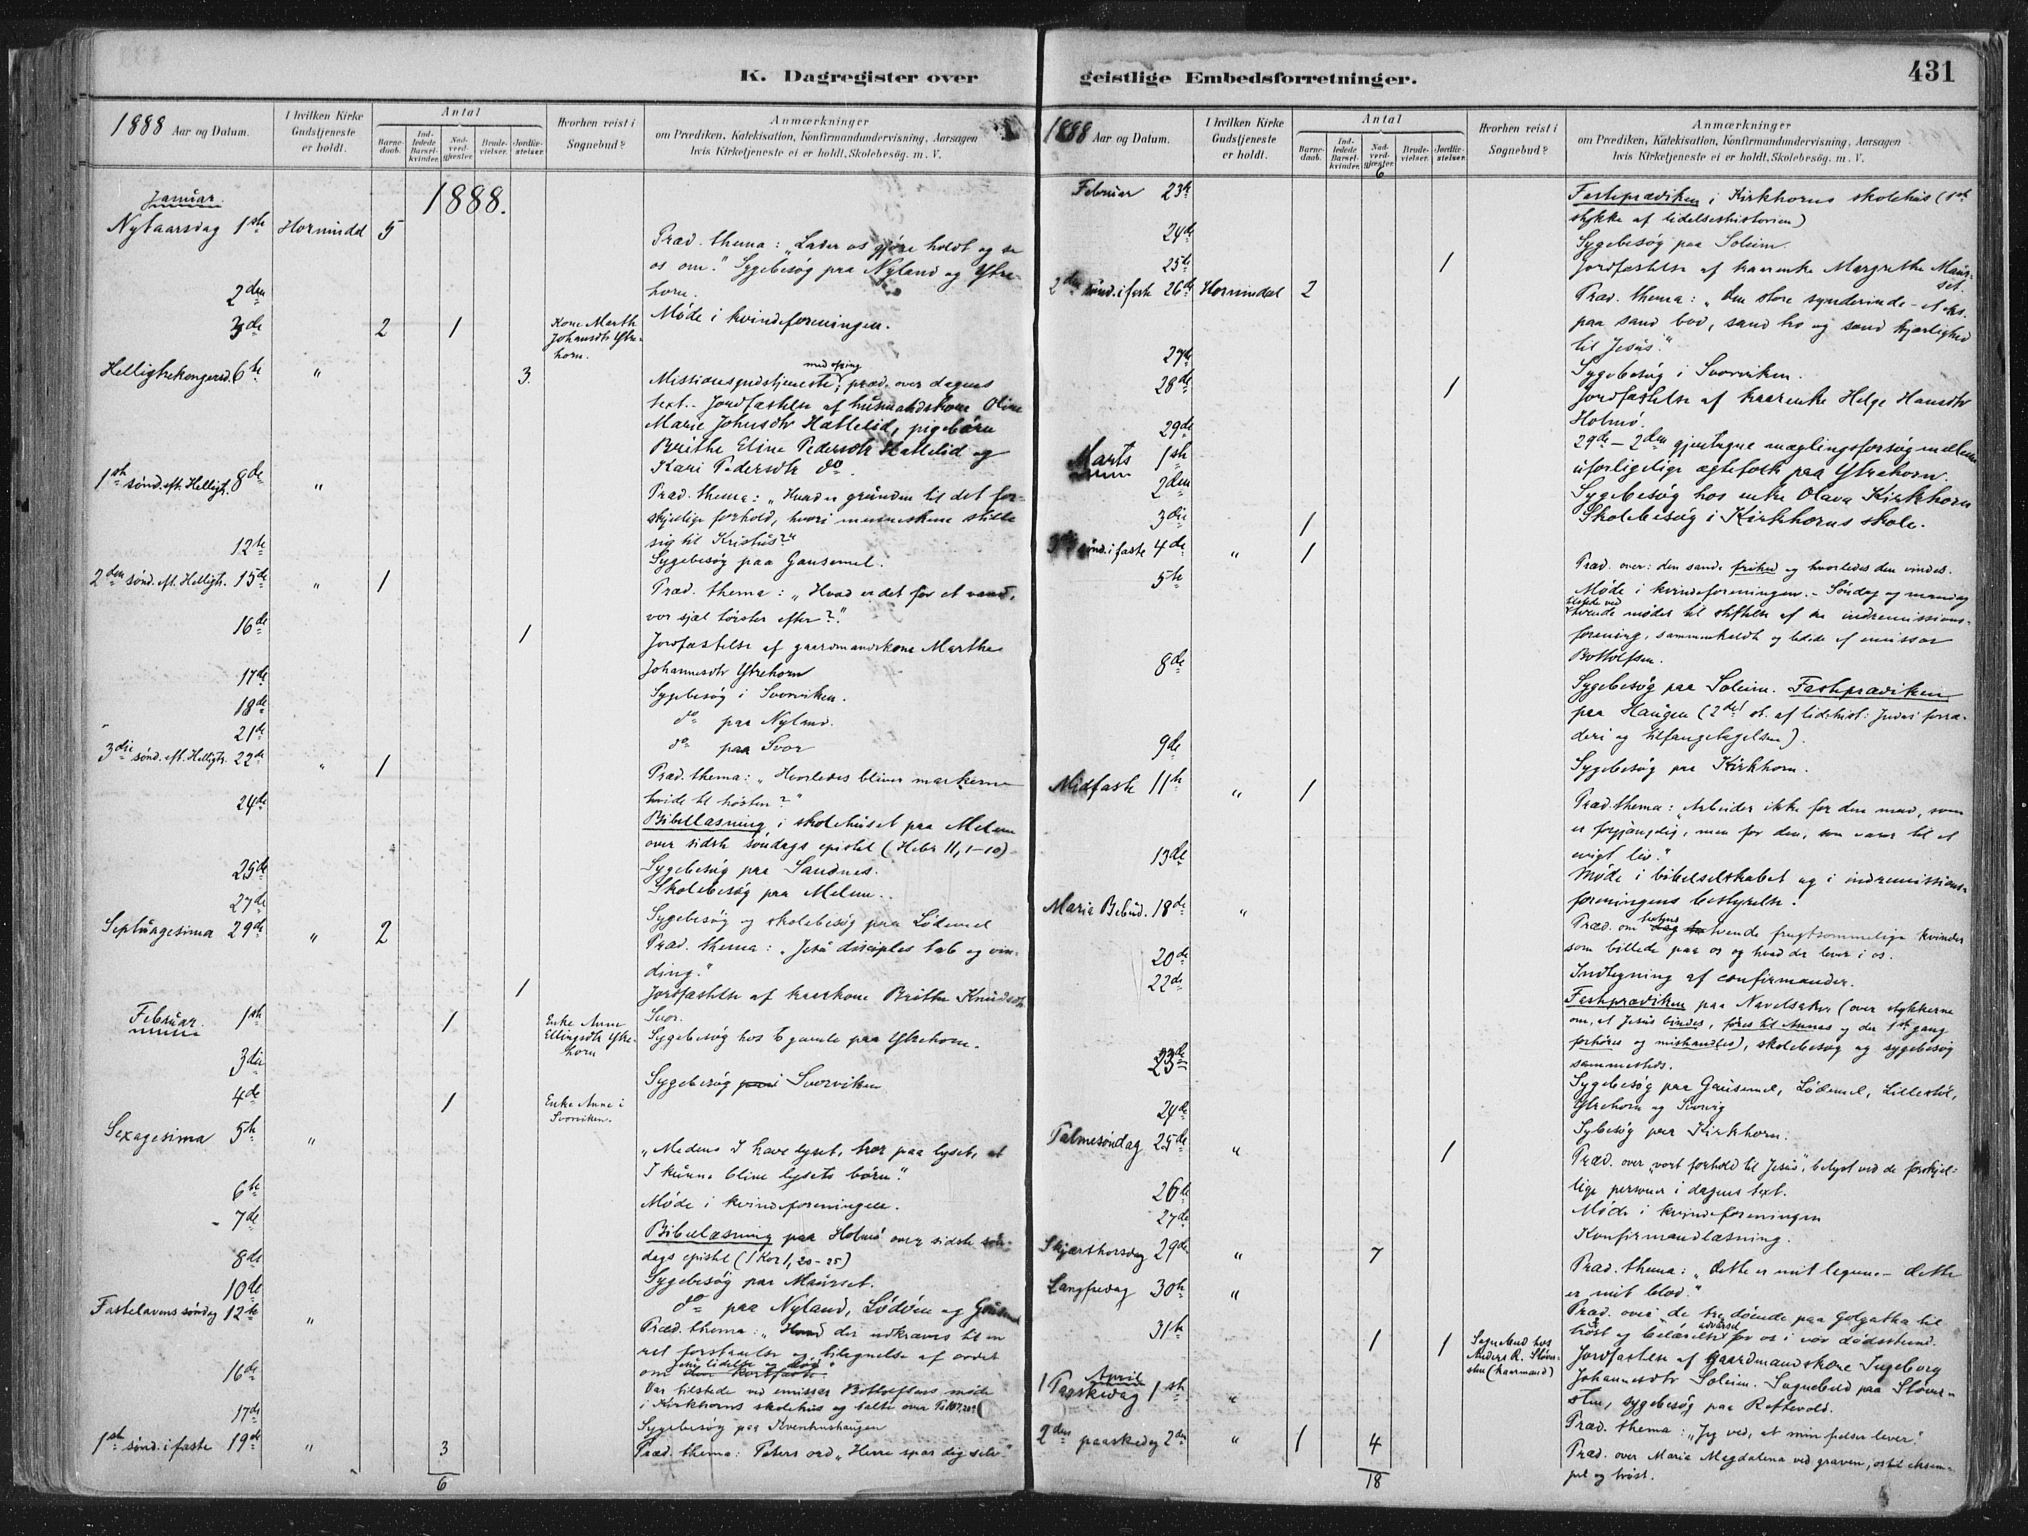 K. Dagregister over
1888 Aar og Datum.
I hvilken Kirke Gudstjeneste er holdt.
Antal
Barnedaab.
Indledede Barselkvinder.
Nadverdgjester.
Brudevielser.
Jordfæstelser.
Hvorhen reist i Sognebud?
Anmærkninger
om Prædiken, Katekisation, Konfirmandundervisning, Aarsagen
hvis Kirketjeneste ei er holdt, Skolebesøg. m. V.
Januar 1888.
Nytaarsdag 1ste Hornindal 5
Præd. thema: "Lader os gjøre holdt og se
os om." Sygebesøg paa Nyland og Ytre-
horn.
2den Møde i kvindeforeningen.
3die 2 1 Kone Marth
Johansdtr Ytre-
horn.
Helligtrekongersd. 6te " 3
Missionsgudstjeneste med ofring; præd. over dagens
text. Jordfæstelse af husmandskone Oline
Marie Johnsdtr Hattelid, pigebørn
Brithe Eline Pedersdtr Hattelid og
Kari Pedersdtr do
1ste sønd. eft. Helligtr. 8de "
Præd. thema: "Hvad er grunden til det for-
skjellige forhold, hvori menneskene stille
sig til Kristus?"
12te Sygebesøg paa Gausemel.
2den sønd. eft. Helligtr. 15de " 1
Præd. thema: "Hvad er det for et vand,
vor sjæl tørster efter?"
16de 1 Jordfæstelse af gaardmandskone Marthe
Johannesdtr Ytrehorn
17de Sygebesøg i Svorviken.
18de do paa Nyland.
21de do paa Svor
3die sønd. eft. Helligtr. 22de " 1
Præd. thema: "Hvorledes bliver markerne
hvide til høsten?"
24de Bibellæsning i skolehuset paa Melem
over sidste søndags epistel (Hebr 11, 1-10)
25de Sygebesøg paa Sandnes.
Skolebesøg paa Melem.
27de Sygebesøg og skolebesøg paa Lødemel
Septuagesima 29de " 2
Præd. thema: "Jesu disciples tab og vin-
ding."
1 Jordfæstelse af kaarkone Brithe Knudsdtr
Svor.
Februar 1ste 1 Enke Anne
Ellingsdtr Ytre-
horn
Sygebesøg hos 6 gamle paa Ytrehorn.
3die Sygebesøg i Svorviken
4de 1 Enke Anne i
Svorviken.
Sexagesima 5te "
"Medens I have lyset, tror paa lyset, at
I kunne blive lysets børn".
6te Møde i kvindeforeningen.
7de Bibellæsning paa Holmø over sidste søn-
dags epistel (1 Kor 1, 20-25)
8de Sygebesøg paa Maurset.
10de do paa Nyland, Lødøen og
Fastelavens søndag 12te "
Præd. thema: "Hvad der udkræves til en
ret forstaaelse og tilegnelse af ordet
om Jesu lidelse og død"
16de Var tilstede ved emissær Bottolfsens møde
i Kirkhorns skolehus og talte over
17de Sygebesøg paa Kvenhushaugen
1ste sønd. i faste 19de " 3 Præd. thema: Peters ord "Herre spar dig selv"
6
geistlige Embedsforretninger. 431
1888 Aar og Datum.
I hvilken Kirke Gudstjeneste er holdt.
Antal
Barnedaab.
Indledede Barselkvinder.
Nadverdgjester.
Brudevielser.
Jordfæstelser.
Hvorhen reist i Sognebud?
Anmærkninger
om Prædiken, Katekisation, Konfirmandundervisning, Aarsagen
hvis Kirketjeneste ei er holdt, Skolebesøg. m. V.
6
Februar 23de Fasteprædiken i Kirkhorns skolehus (1ste
stykke af lidelseshistorien)
24de Sygebesøg paa Soleim.
25de 1 Jordfæstelse af kaarenke Margrethe Maur-
set.
2den sønd. i faste 26de Hornindal 2
Præd. thema: "Den store synderinde et eks.
paa sand bod, sand tro og sand kjærlighed
til Jesus."
27de Sygebesøg i Svorviken.
28de 1 Jordfæstelse af kaarenke Helge Hansdtr
Holmø.
29de 29de - 2den gjentagne mæglingsforsøg mellem
uforligelige ægtefolk paa Ytrehorn.
Marts 1ste
2den Sygebesøg hos enke Olava Kirkhorn
3die 1 Skolebesøg i Kirkhorns skole.
3die sønd. i faste 4de " 1
Præd. over: den sande frihed og hvorledes den vindes.
5te Møde i kvindeforeningen. - Søndag og mandag
tilstede ved tvende møder til stiftelse af en indremissions-
forening, sammenkaldt og ledede af emissær
Bottolfsen.
8de Sygebesøg paa Soleim. Fasteprædiken
paa Haugen (2det st. af lidshist: Judas' forræ-
deri og tilfangetagelsen).
9de Sygebesøg paa Kirkhorn.
Midfaste 11te " 1
Præd. thema: "Arbeider ikke for den mad, som
er forgjængelig, men for den, som varer til et
evigt liv."
13de Møde i bibelselskabet og i indremissions-
foreningens bestyrelse.
Mariæ Bebud. 18de "
Præd. om tvende frugtsommelige kvinder
som billede paa os og hvad der lever i os.
20de Indtegning af confirmander.
22de Fasteprædiken paa Navelsaker (over stykkerne
om, at Jesus bindes, føres til Annas og der 1ste gang
forhøres og mishandles), skolebesøg og sygebesøg
sammesteds.
23de Sygebesøg paa Gausemel, Lødemel, Lillestøl,
Ytrehorn og Svorvig
24de Sybesøg paa Kirkhorn.
Palmesøndag 25de " 1
Præd. over "vort forhold til Jesus", belyst ved de forskjel-
lige personer i dagens text.
26de Møde i kvindeforeningen
27de Konfirmandlæsning.
Skjærthorsdag 29de " 7
Præd. thema: "dette er mit legeme - dette
er mit blod."
Langfredag 30te "
Præd. over de tre døende paa Golgatha til
trøst og advarsel for os i vor dødsstund.
31te 1 1 Sognebud hos
Anders R. Støver-
sten (kaarmand)
Jordfæstelse af gaardmandskone Ingeborg
Johannesdtr Soleim. Sognebud paa Støver-
sten, sygebesøg paa Raftevold.
April
1 Paaskedag 1ste "
Præd. thema: "Jeg ved, at min frelser lever".
2den paaskedag 2den " 1 4
Præd. over Maria Magdalena ved graven, os til eksem-
pel og trøst.
18